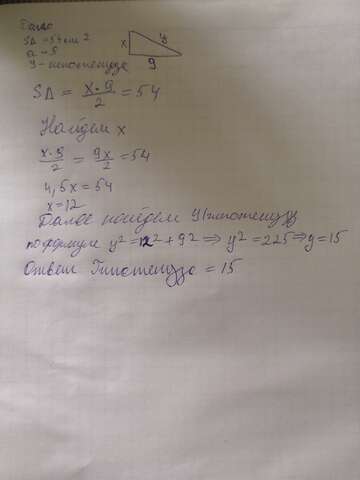 Дано
SΔ = 54 см 2
a = 9
y - гипотенуза
x y
9
SΔ = x·9/2 = 54
Найдем x
x·9/2 = 9x/2 = 54
4,5x = 54
x = 12
Далее найдем y/гипотенузу
по формуле y² = 12² + 9² ⇒ y² = 225 ⇒ y = 15
Ответ Гипотенуза = 15